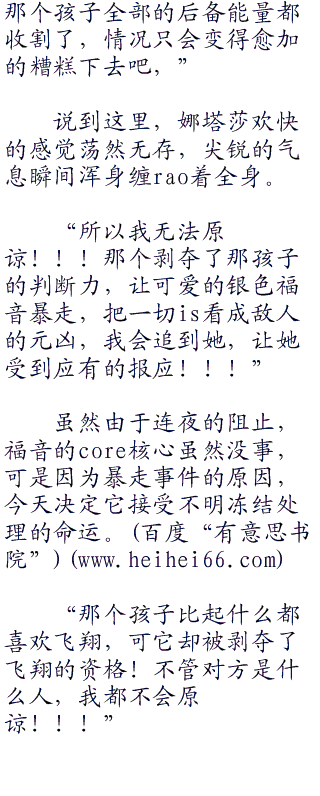 那个孩子全部的后备能量都
收割了，情况只会变得愈加
的糟糕下去吧，”
说到这里，娜塔莎欢快
的感觉荡然无存，尖锐的气
息瞬间浑身缠rao着全身。
“所以我无法原
谅！！！那个剥夺了那孩子
的判断力，让可爱的银色福
音暴走，把一切is看成敌人
的元凶，我会追到她，让她
受到应有的报应！！！”
虽然由于连夜的阻止，
福音的core核心虽然没事，
可是因为暴走事件的原因，
今天决定它接受不明冻结处
理的命运。(百度“有意思书
院”)(www.heihei66.com)
“那个孩子比起什么都
喜欢飞翔，可它却被剥夺了
飞翔的资格！不管对方是什
么人，我都不会原
谅！！！”